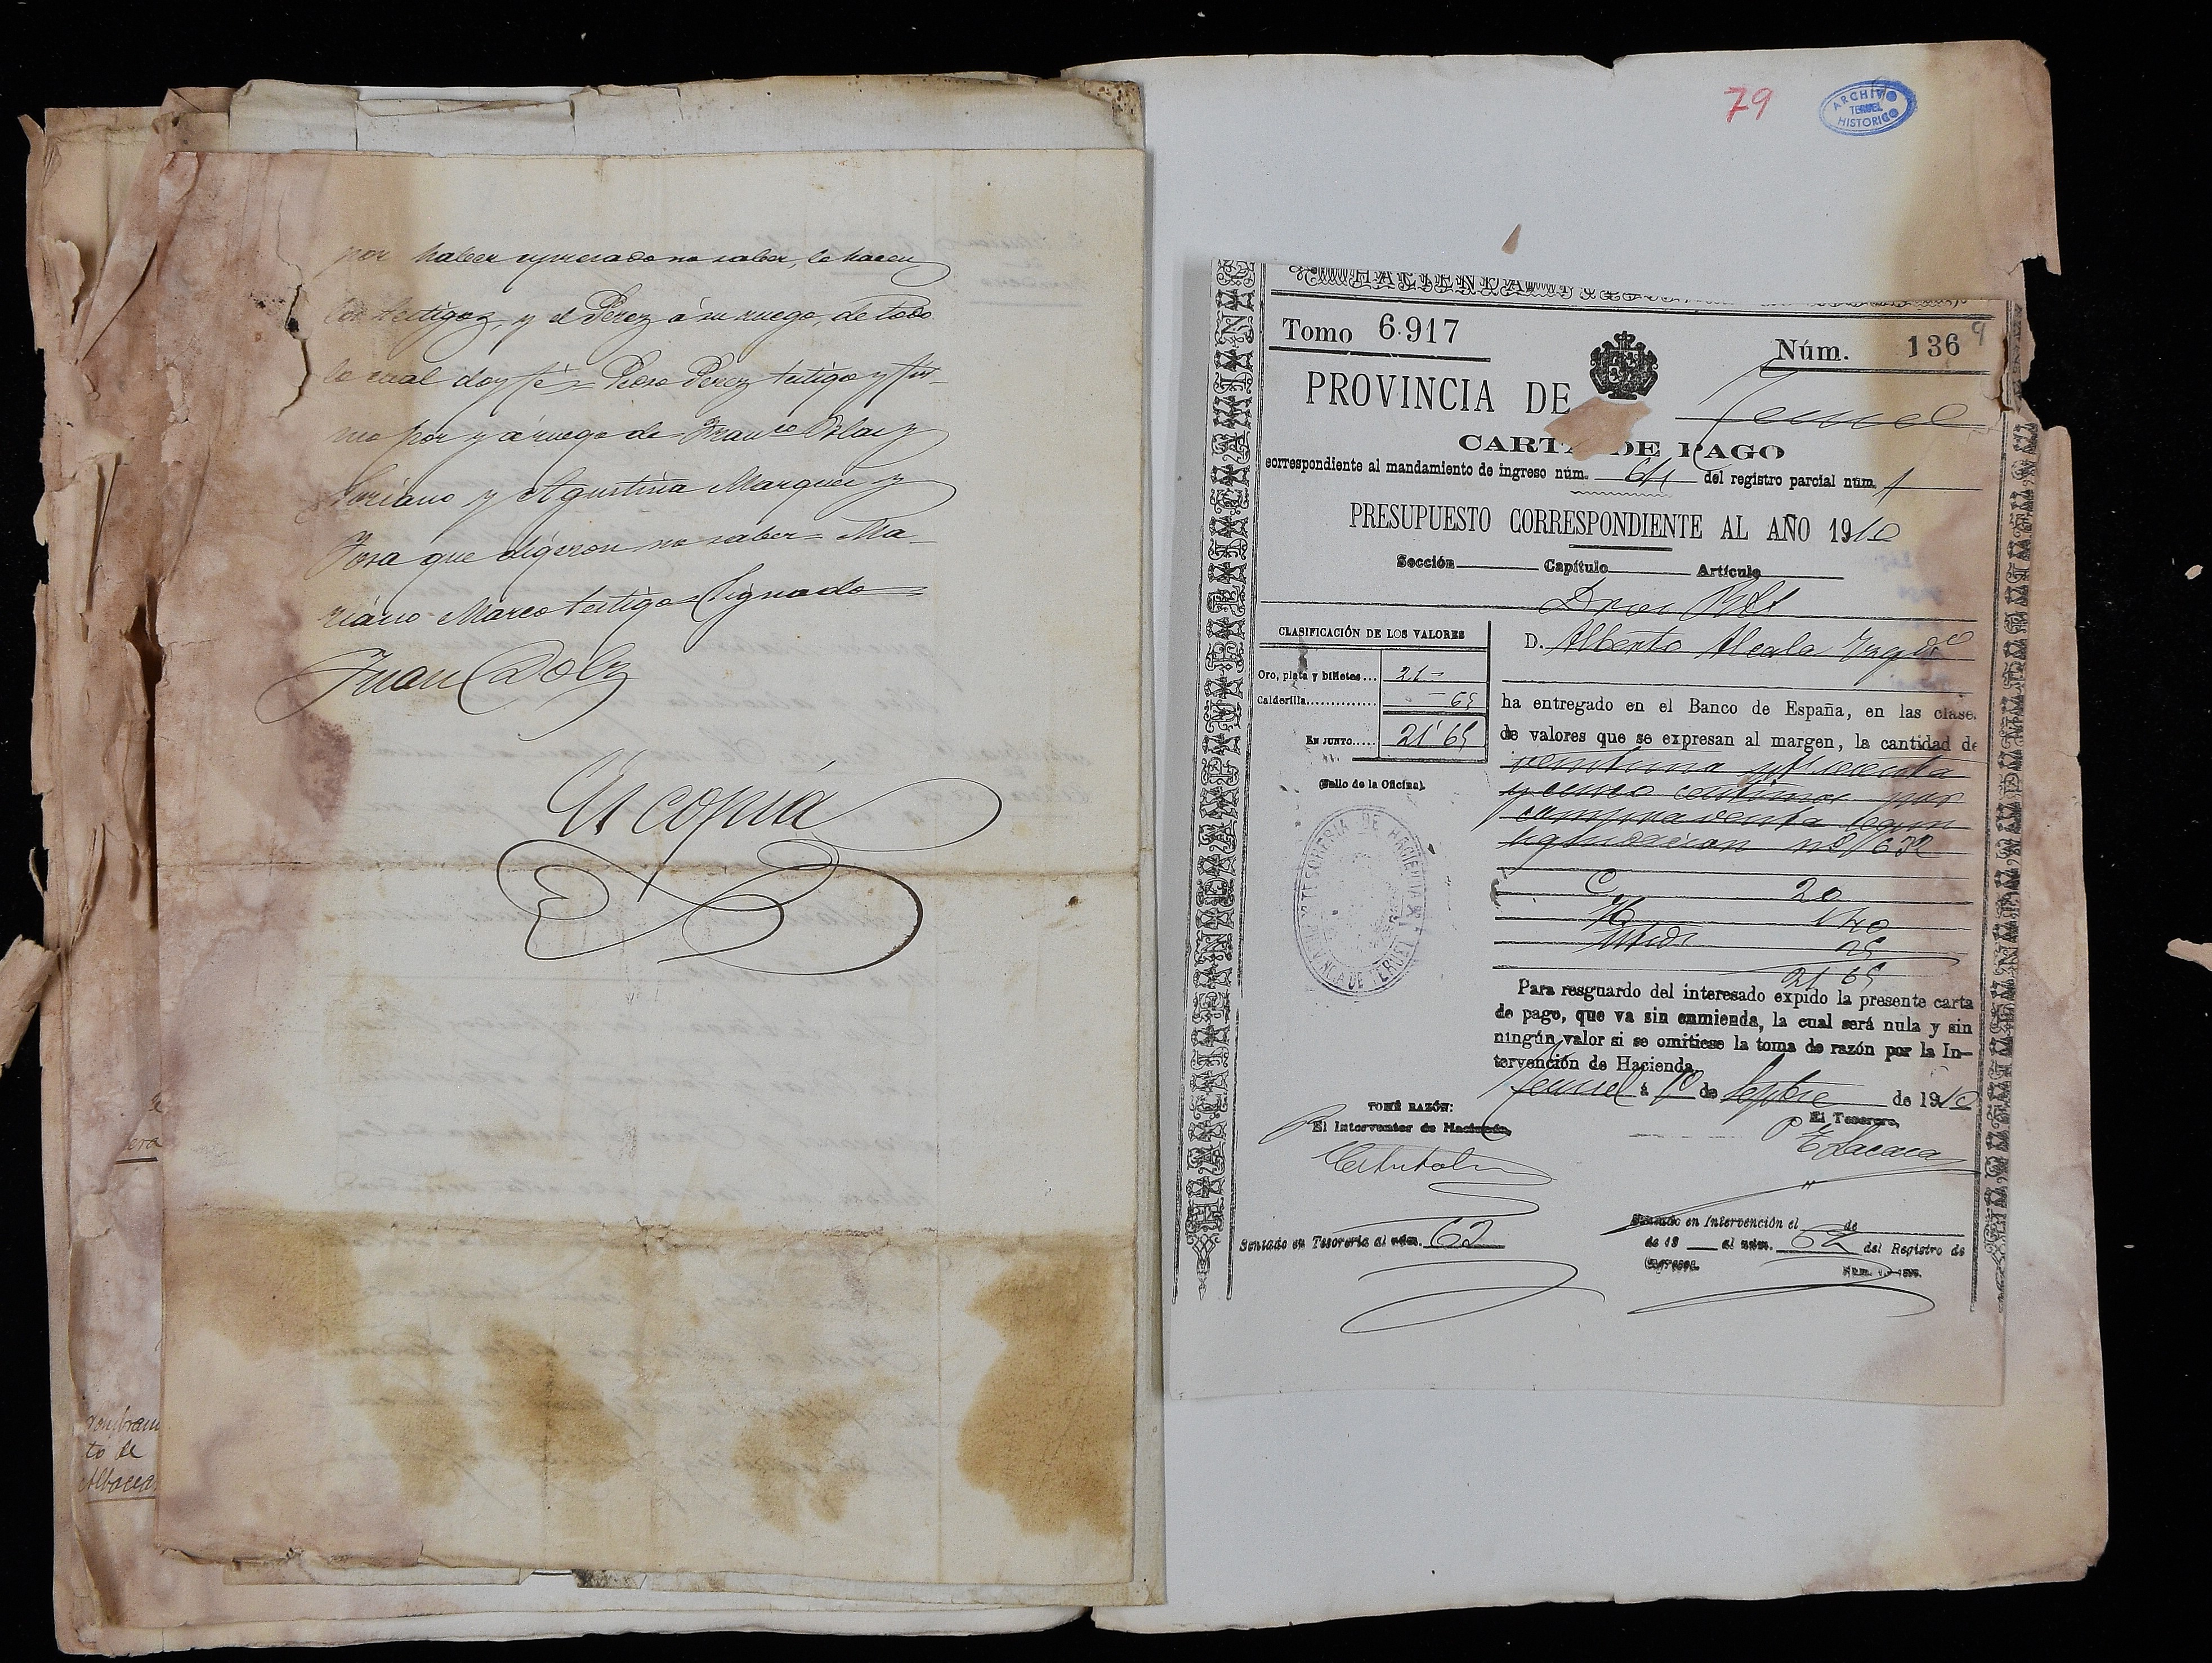 por haber expresado no saber, lo hacen
los testigos, y el Perez á su ruego, de todo
lo cual doy fé = Pedro Perez testigo y fir-
mo por y á ruego de Franco Polo y
Soriano y Agustina Marques y
que digeron no saber = Ma-
riano Marco testigo = Signado =
Juan Dolz
Es copia
to de
Albacea
79
ARCHIVO
TERUEL
HISTORICO
HACIENDA
Tomo 6.917
Núm. 136
9
PROVINCIA DE Teruel
CARTA DE PAGO
correspondiente al mandamiento de ingreso núm. 64 del registro parcial núm. 1
PRESUPUESTO CORRESPONDIENTE AL AÑO 1910
Sección Capítulo Artículo
CLASIFICACIÓN DE LOS VALORES
Oro, plata y billetes... 21 -
Calderilla.............. - 65
EN JUNTO..... 21'65
(Sello de la Oficina).
TESORERIA DE HACIENDA
PROVINCIA DE TERUEL
D. Alberto Alcala
ha entregado en el Banco de España, en las clases
de valores que se expresan al margen, la cantidad de
veintiuna pts sesenta
y cinco centimos por
compraventa segun
liquidacion nº 1632
C 20
H 1 40
25
21 65
Para resguardo del interesado expido la presente carta
de pago, que va sin enmienda, la cual será nula y sin
ningún valor si se omitiese la toma de razón por la In-
tervención de Hacienda.
Teruel á 10 de Septbre de 1910
TOMÉ RAZÓN:
El Interventor de Hacienda,
El Tesorero,
Sentado en Tesorería al núm. 62
Sentado en Intervención el de
de 19 al núm. 62 del Registro de
ingresos.